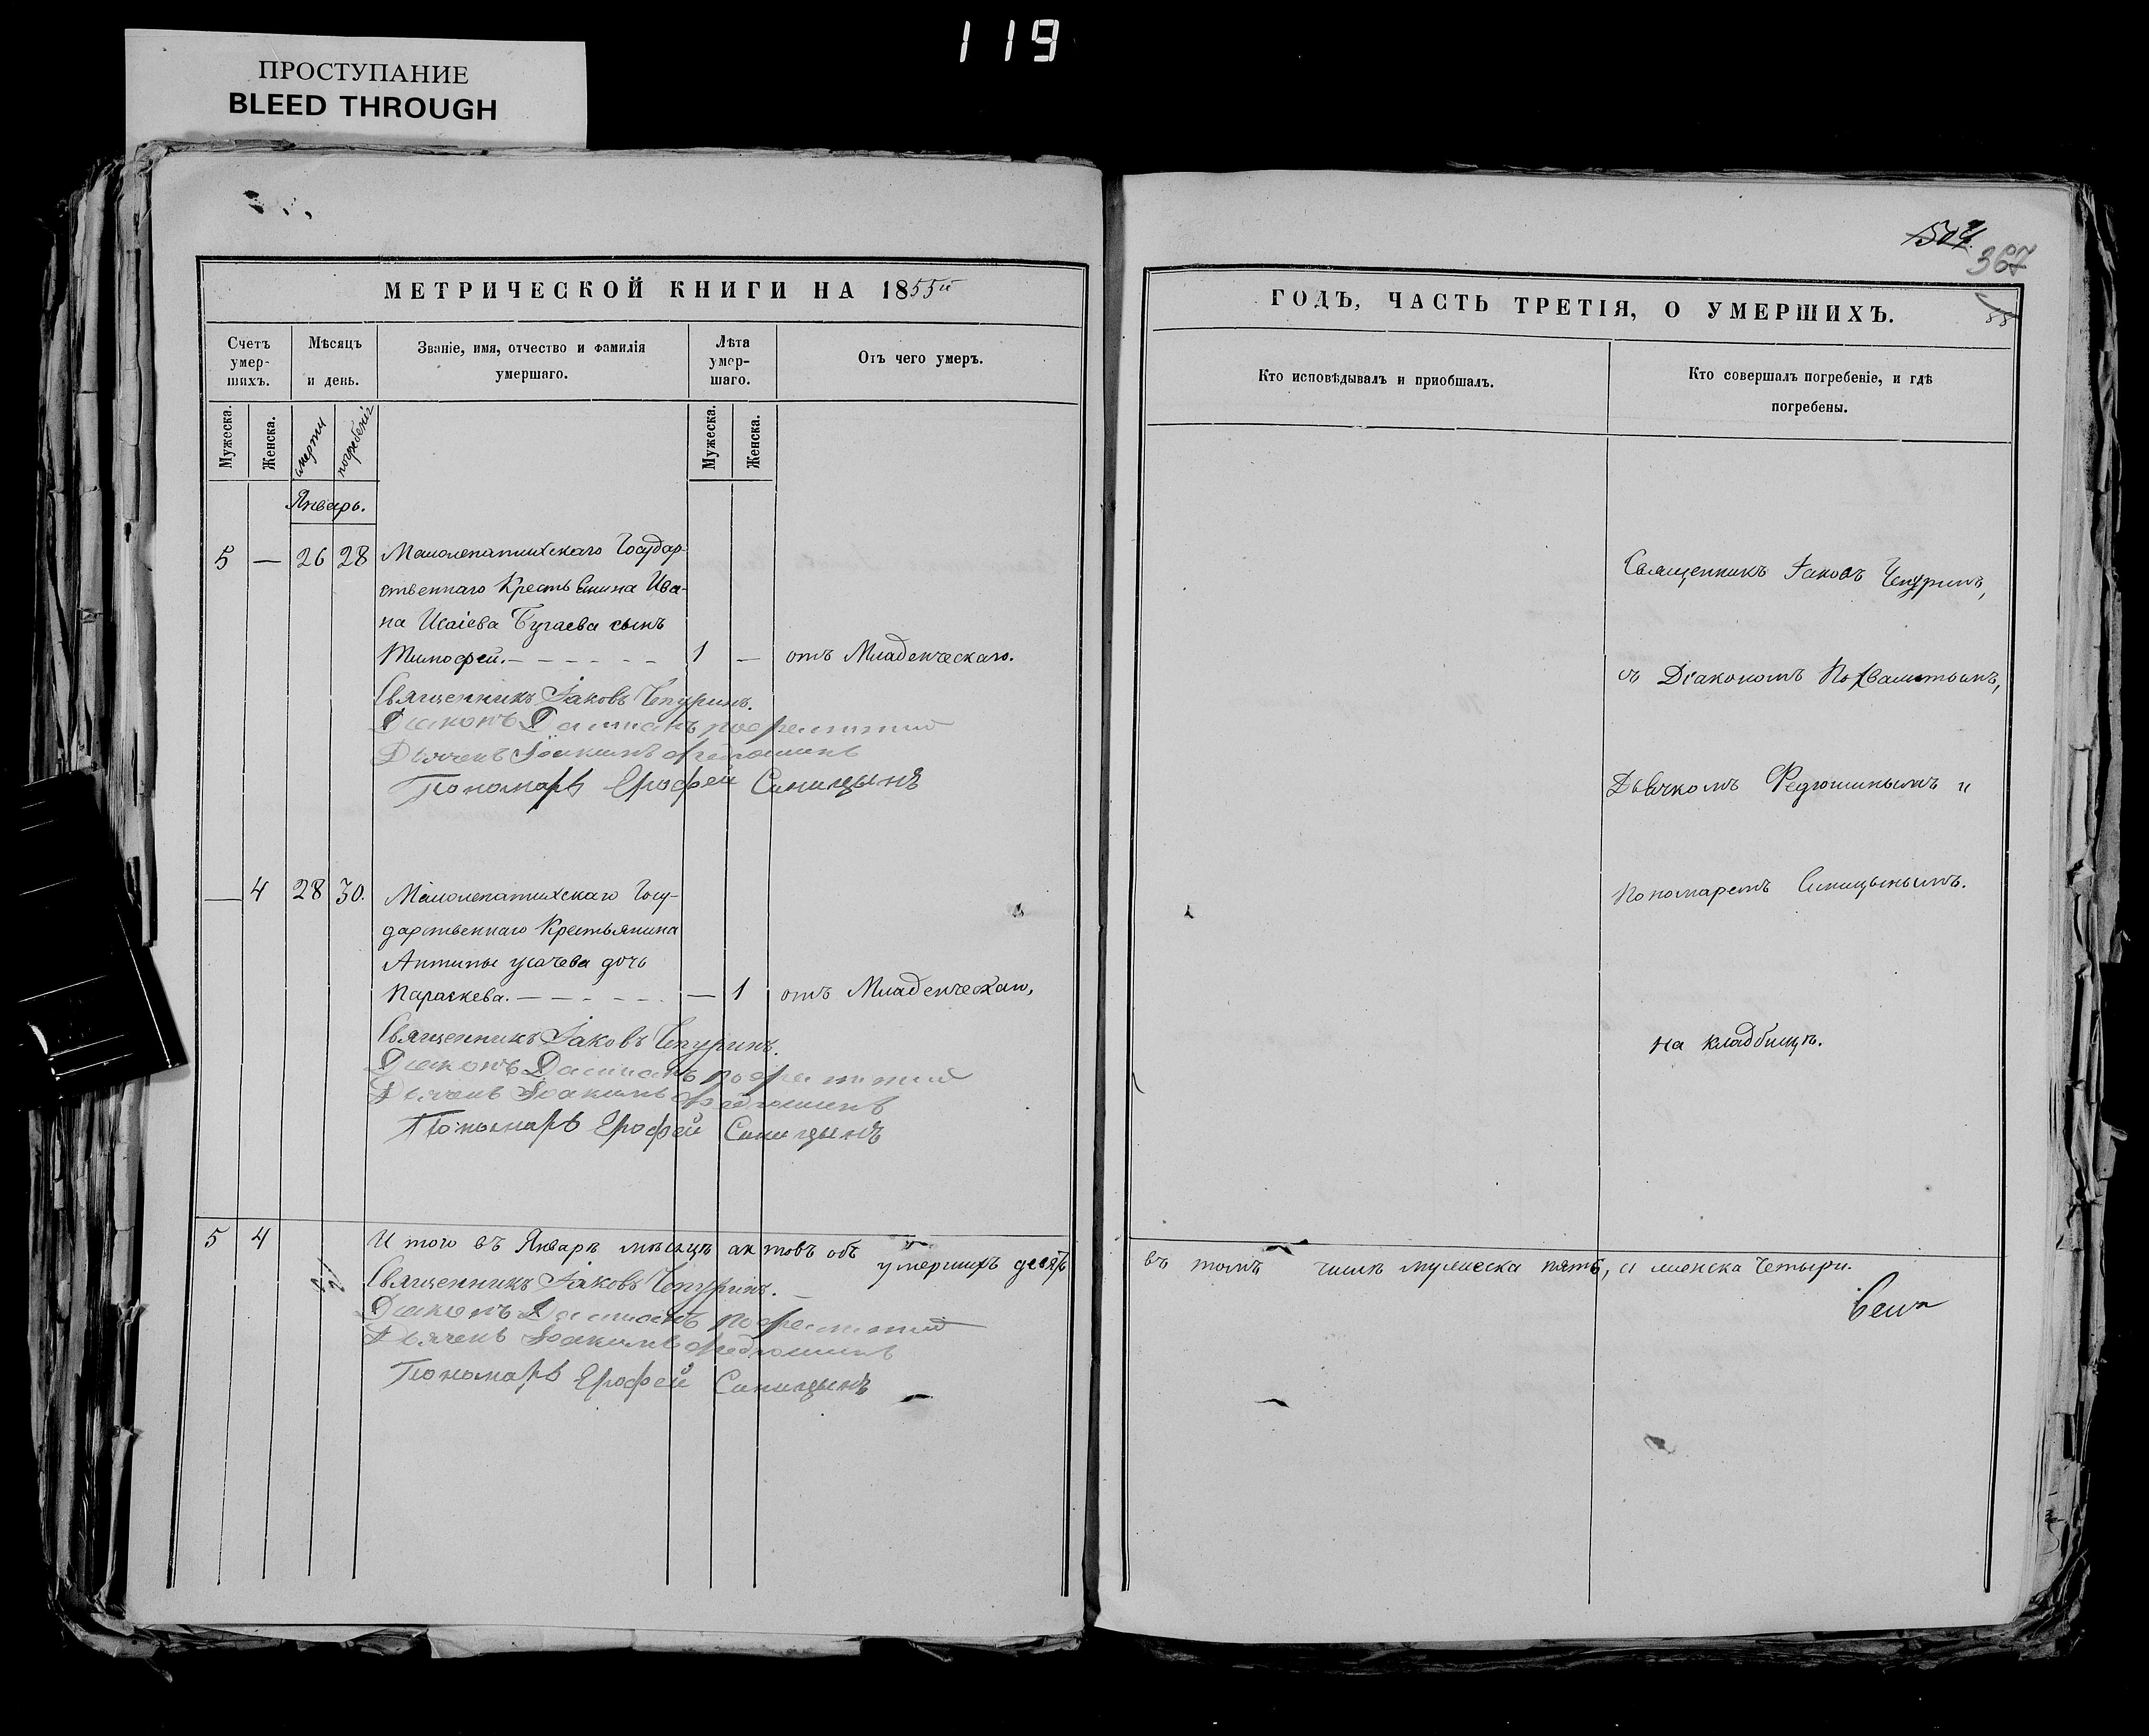 119
ПРОСТУПАНИЕ
BLEED THROUGH
МЕТРИЧЕСКОЙ КНИГИ НА 1855й
Счетъ умерших.
Мѣсяцъ и день.
Званіе, имя, отчество и фамилія умершаго.
Лѣта умершаго.
Отъ чего умеръ.
Мужеска.
Женска.
смерти
погребенія
Мужеска.
Женска.
Январь.
5 — 26 28 Малолепатихскаго Государ-
ственнаго Крестьянина Ива-
на Исаіева Бугаева сынъ
Тимофей. — 1 — отъ Младенческаго.
Священникъ Іаковъ Чепуринъ.
Діаконъ Дамианъ
Дьячекъ Іоакимъ Федюшинъ
Пономарь Ерофей Синицынъ
— 4 28 30. Малолепатихскаго Госу-
дарственнаго Крестьянина
Антипы Усачева дочь
Параскева. — — 1 отъ Младенческаго,
Священникъ Іаковъ Чепуринъ.
Діаконъ Дамианъ
Дьячекъ Іоакимъ Федюшинъ
Пономарь Ерофей Синицынъ
5 4 Итого въ Январѣ мѣсяцѣ актовъ объ умершихъ
Священникъ Іаковъ Чепуринъ.
Діаконъ Дамианъ
Дьячекъ Іоакимъ Федюшинъ
Пономарь Ерофей Синицынъ
367
ГОДЪ, ЧАСТЬ ТРЕТІЯ, О УМЕРШИХЪ.
Кто исповѣдывалъ и приобщалъ.
Кто совершалъ погребеніе, и гдѣ
погребены.
Священникъ Іаковъ Чепуринъ,
съ Діакономъ
Дьячкомъ Федюшинымъ и
Пономаремъ Синицынымъ.
на кладбищѣ.
въ томъ числѣ мужеска пять, а женска четыри.